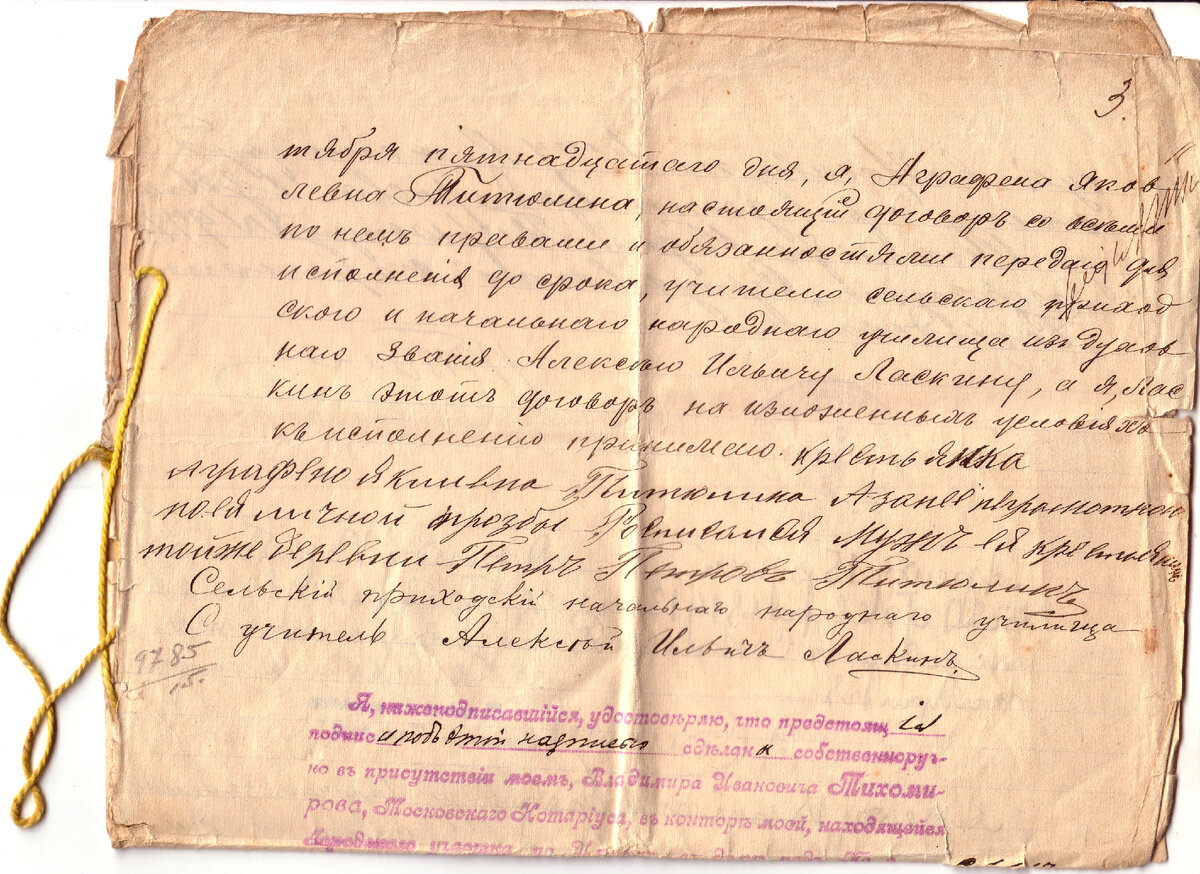 3.
тября пятнадцатаго дня, я, Аграфена Яков
левна Титюлина, настоящій договоръ со всѣми
по немъ правами и обязанностями передаю для
исполненія до срока, учителю сельскаго приход
ского и начальнаго народнаго училища изъ духов
наго званія Алексѣю Ильичу Ласкину, а я, Лас
кинъ этотъ договоръ на изложенныхъ условіяхъ
къ исполненію принимаю. крестьянка
Аграфена Титюлина А занее неграмотною
поея личной прозбы Росписался мужъ ея крестьянинъ
тойже деревни Петръ Петровъ Титюлинъ
Сельскій приходскій начальнаго народнаго училища
учитель Алексѣй Ильичъ Ласкинъ.
9785
Я, нижеподписавшійся, удостовѣряю, что предстоящія
подписи подъ этой надписью сдѣланы собственнору-
но въ присутствіи моемъ, Владимира Ивановича Тихоми-
рова, Московскаго Нотаріуса, въ конторѣ моей, находящейся
Городского участка, по